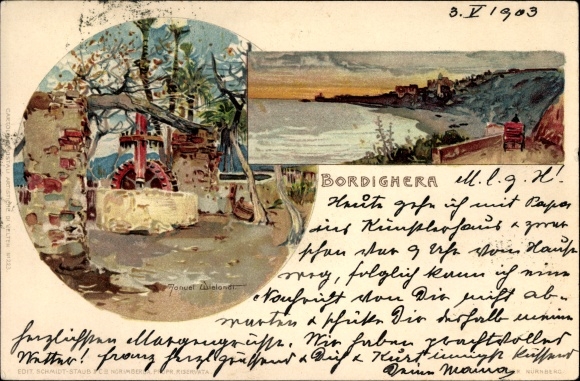 3. V 1903
BORDIGHERA
M. l. g. H!
Heute gehe ich mit Papa
ins Künstlerhaus & zwar
schon vor 9 Uhr vom Hause
weg, folglich kann ich eine
Nachricht von Dir nicht ab-
warten & schicke Dir deshalb meine
herzlichsten Morgengrüsse. Wir haben prachtvolles
Wetter! Franz herzl. grüssend & Dich & Kurt innigst küssend
Deine Mama
Manuel Wielandt
EDIT. SCHMIDT-STAUB & CO NORIMBERGA, PROPR. RISERVATA
NÜRNBERG.